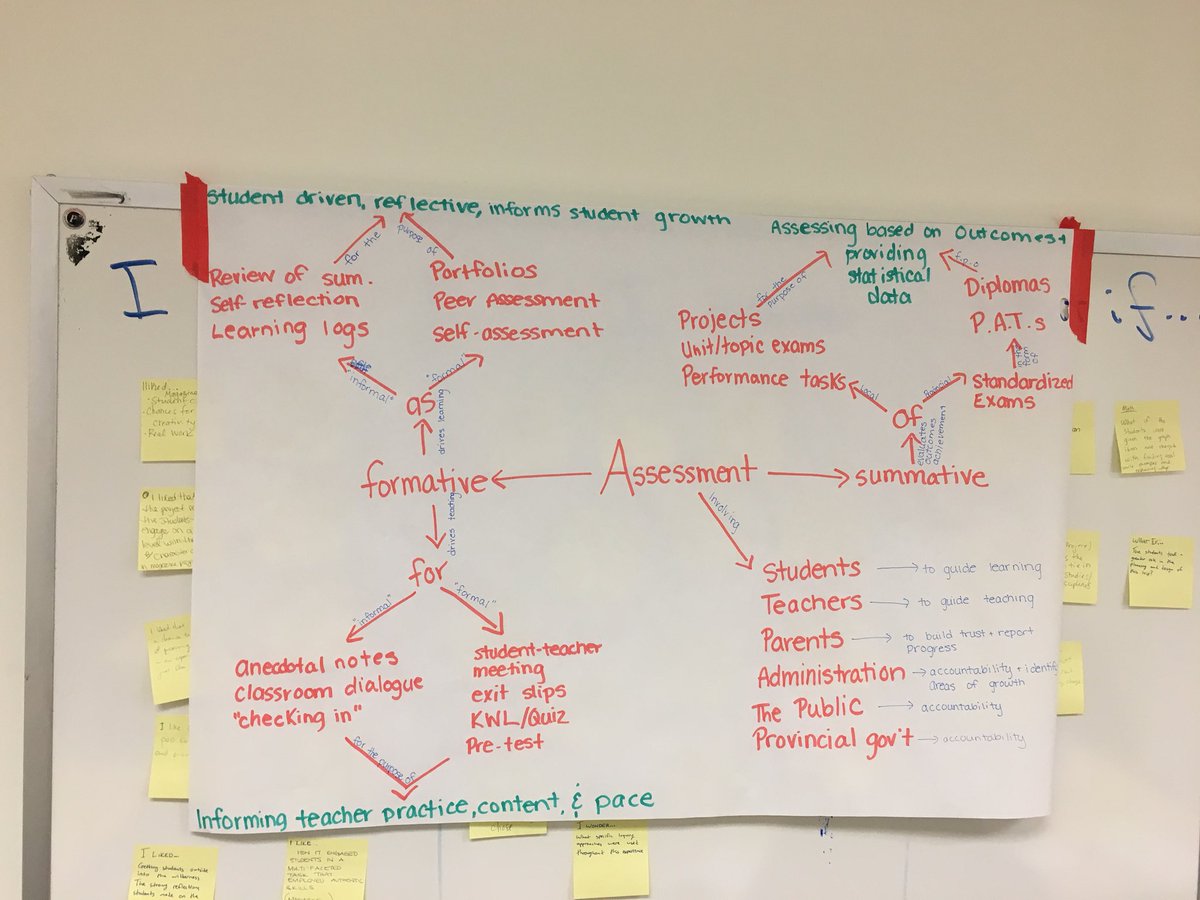 Student driven, reflective, informs student growth
for the
purpose of
Review of sum.
Self reflection
Learning logs
Portfolios
Peer Assessment
self-assessment
"informal"
"formal"
as
drives learning
formative
drives teaching
for
"informal"
"formal"
anecdotal notes
classroom dialogue
"checking in"
student-teacher
meeting
exit slips
KWL/Quiz
Pre-test
for the purpose of
Informing teacher practice, content, & pace
Assessment
Assessing based on outcomes +
providing
statistical
data
for the
purpose of
f.p.o
Projects
Unit/topic exams
Performance tasks
Diplomas
P.A.T.s
in the
form
of
Standardized
Exams
local
of
evaluates
outcomes
achievement
summative
involving
Students → to guide learning
Teachers → to guide teaching
Parents → to build trust + report
progress
Administration → accountability + identify
areas of growth
The Public → accountability
Provincial gov't → accountability
I
if...
I liked...
Magazine
- Student c
- Chances for
creativity
- Real Work
I liked that
the project
the students
engage on a
level with the
& character
I like
I LIKED...
Getting students outside
into the wilderness
The strong reflection
students made on the
I LIKE...
ENGAGED
STUDENTS IN A
MULTI FACETED
TASK THAT
EMPLOYED AUTHENTIC
SKILLS
I WONDER...
What specific inquiry
approaches were used
throughout this experience
Math
What if the
students
given the graph
What If...
The students took
greater role in the
planning and design of
this